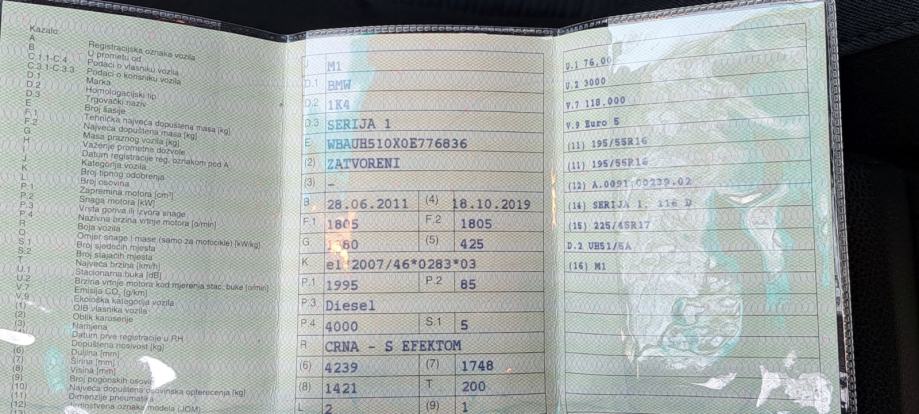 Kazalo:
A Registracijska oznaka vozila
B U prometu od
C.1.1-C.4 Podaci o vlasniku vozila
C.3.1-C.3.3 Podaci o korisniku vozila
D.1 Marka
D.2 Homologacijski tip
D.3 Trgovački naziv
E Broj šasije
F.1 Tehnička najveća dopuštena masa [kg]
F.2 Najveća dopuštena masa [kg]
G Masa praznog vozila [kg]
H Važenje prometne dozvole
I Datum registracije reg. oznakom pod A
J Kategorija vozila
K Broj tipnog odobrenja
L Broj osovina
P.1 Zapremina motora [cm³]
P.2 Snaga motora [kW]
P.3 Vrsta goriva ili izvora snage
P.4 Nazivna brzina vrtnje motora [o/min]
R Boja vozila
Q Omjer snage i mase (samo za motocikle) [kW/kg]
S.1 Broj sjedećih mjesta
S.2 Broj stajaćih mjesta
T Najveća brzina [km/h]
U.1 Stacionarna buka [dB]
U.2 Brzina vrtnje motora kod mjerenja stac. buke [o/min]
V.7 Emisija CO₂ [g/km]
V.9 Ekološka kategorija vozila
(1) OIB vlasnika vozila
(2) Oblik karoserije
(3) Namjena
(4) Datum prve registracije u RH
Dopuštena nosivost [kg]
(6) Duljina [mm]
(7) Širina [mm]
(8) Visina [mm]
(9) Broj pogonskih osovina
(10) Najveća dopuštena osovinska opterećenja [kg]
(11) Dimenzije pneumatika
(12) Jedinstvena oznaka modela (JOM)
J M1
D.1 BMW
D.2 1K4
D.3 SERIJA 1
E WBAUH510X0E776836
(2) ZATVORENI
(3) –
B 28.06.2011 (4) 18.10.2019
F.1 1805 F.2 1805
G (5) 425
K e1*2007/46*0283*03
P.1 1995 P.2 85
P.3 Diesel
P.4 4000 S.1 5
R CRNA - S EFEKTOM
(6) 4239 (7) 1748
(8) 1421 T 200
L 2 (9) 1
U.1 76,00
U.2 3000
V.7 118,000
V.9 Euro 5
(11) 195/55R16
(11) 195/55R16
(12) A.0091.00239.02
(14) SERIJA 1, 116 D
(15) 225/45R17
D.2 UH51/5A
(16) M1